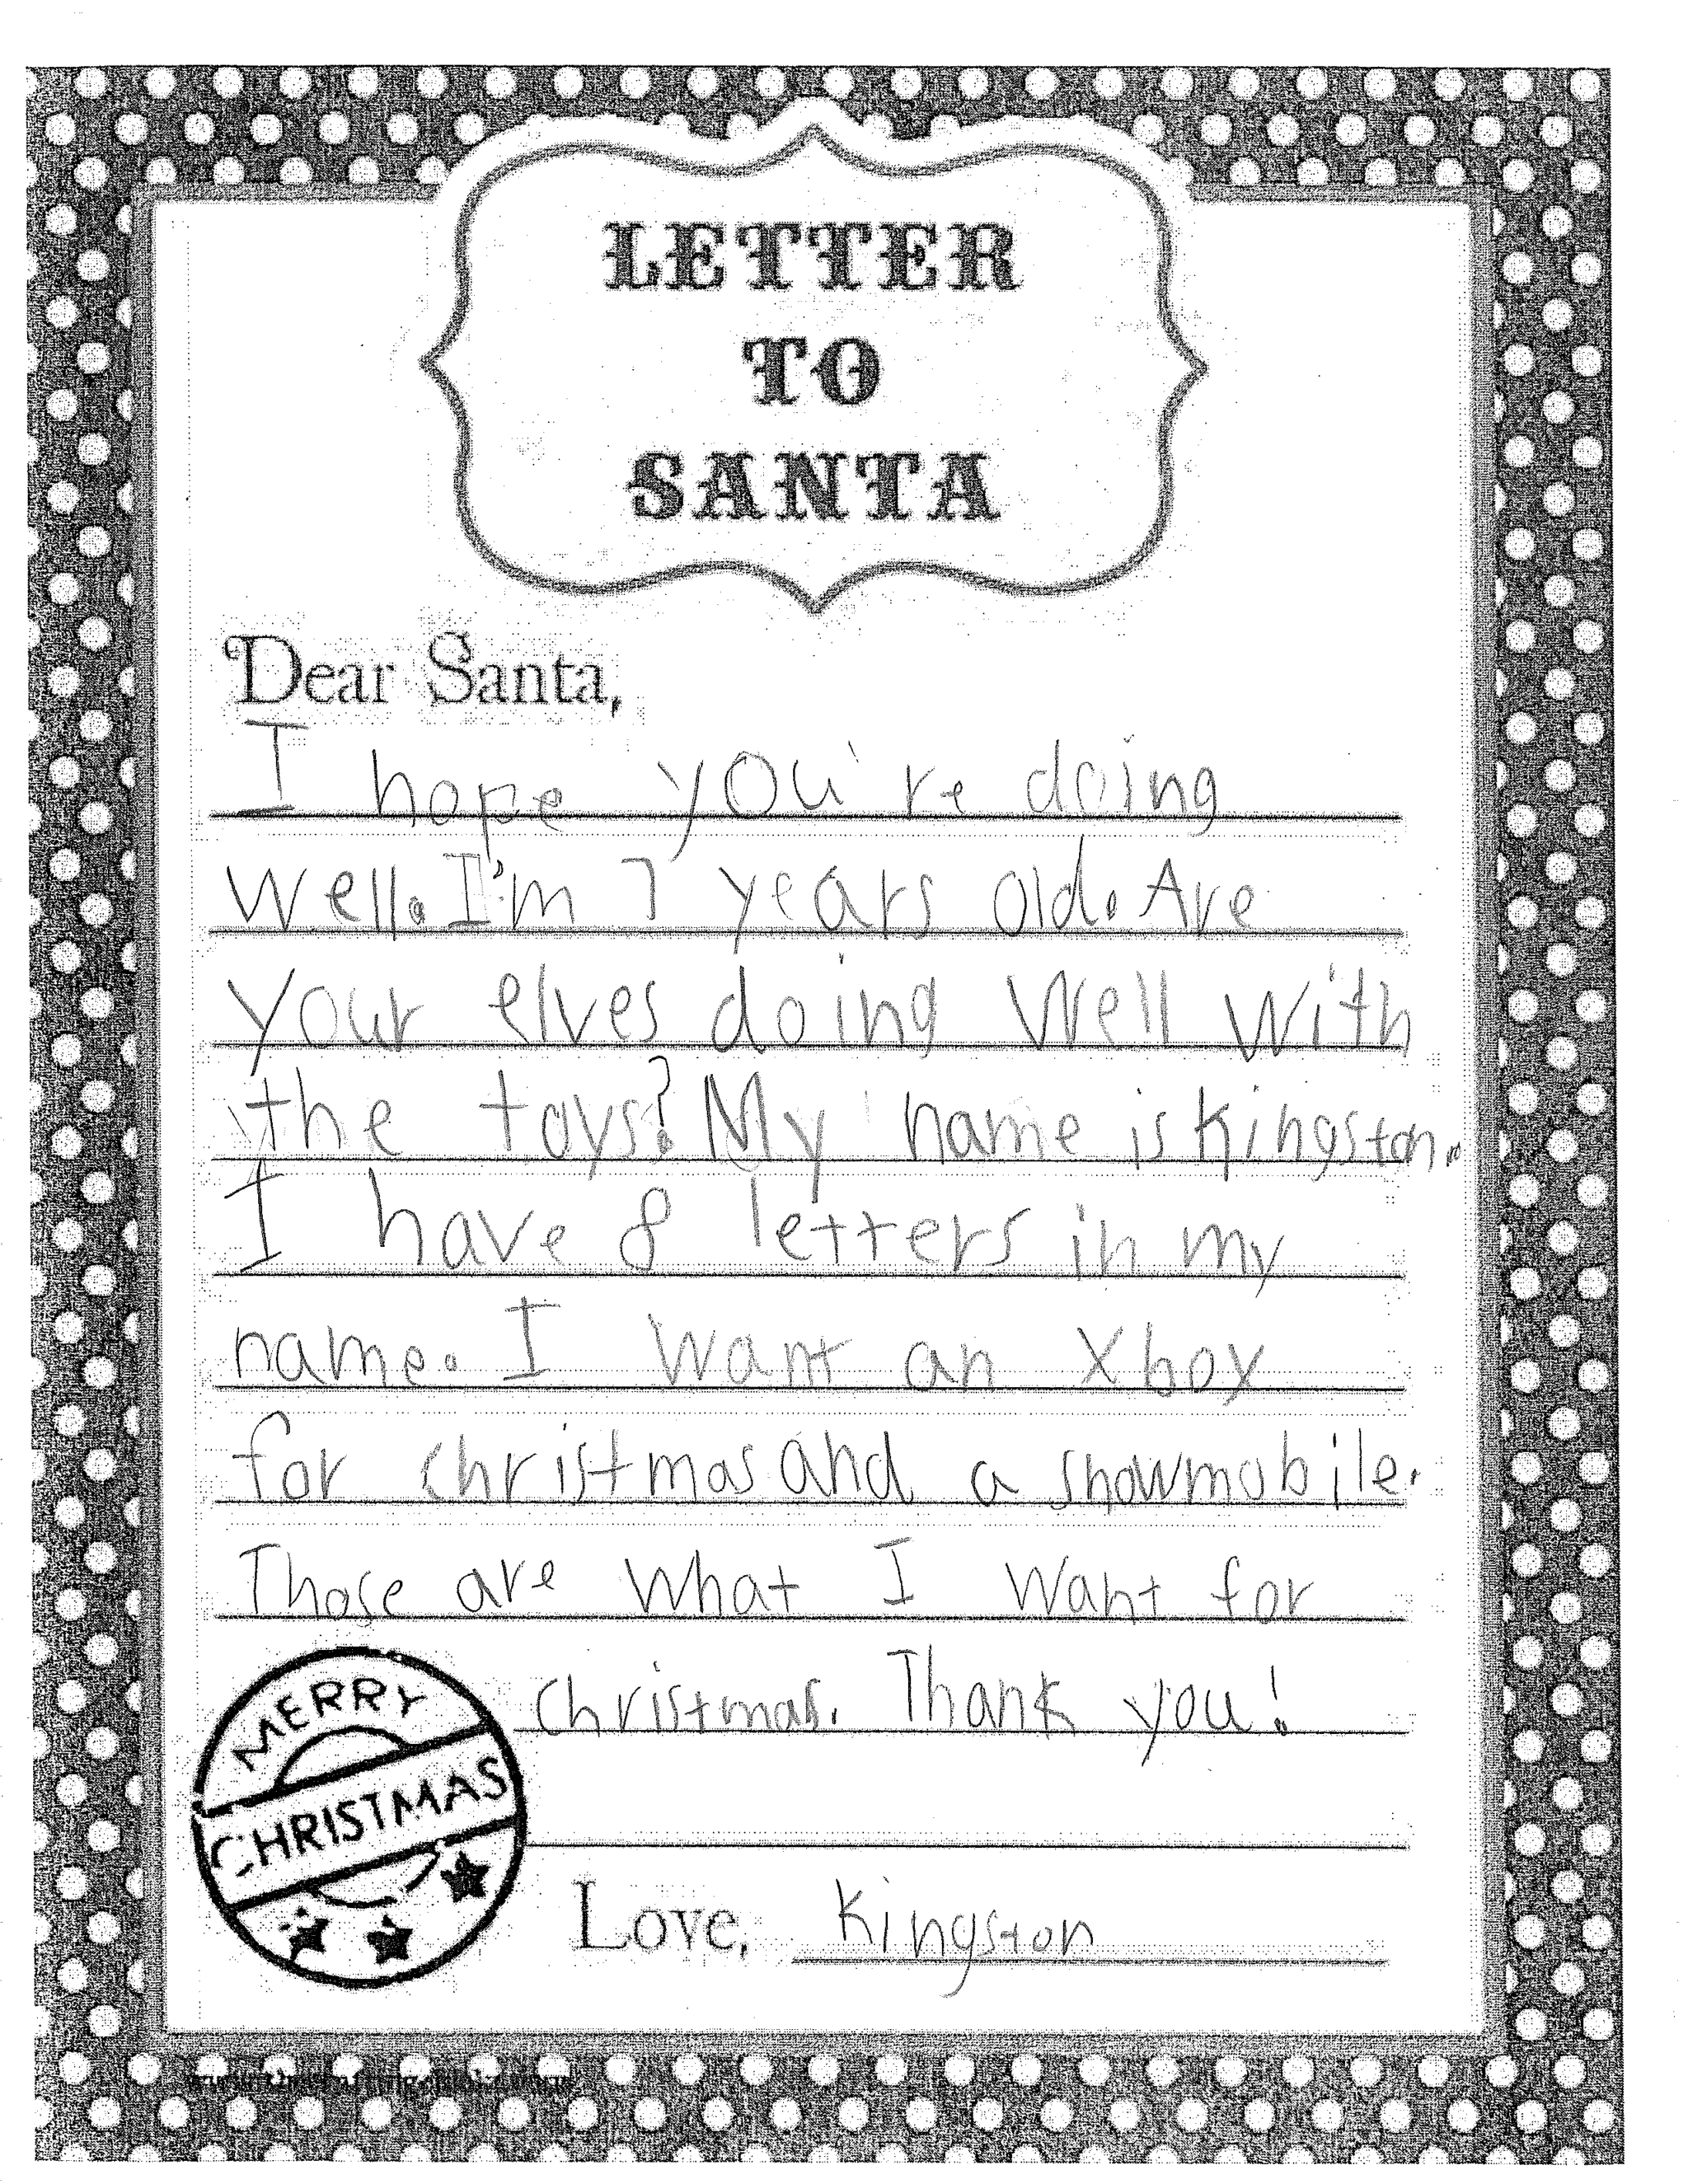 LETTER
TO
SANTA
Dear Santa,
I hope you're doing
well. I'm 7 years old. Are
your elves doing well with
the toys? My name is kingston.
I have 8 letters in my
name. I want an Xbox
for christmas and a snowmobile.
Those are what I want for
christmas. Thank you!
MERRY
CHRISTMAS
Love, kingston